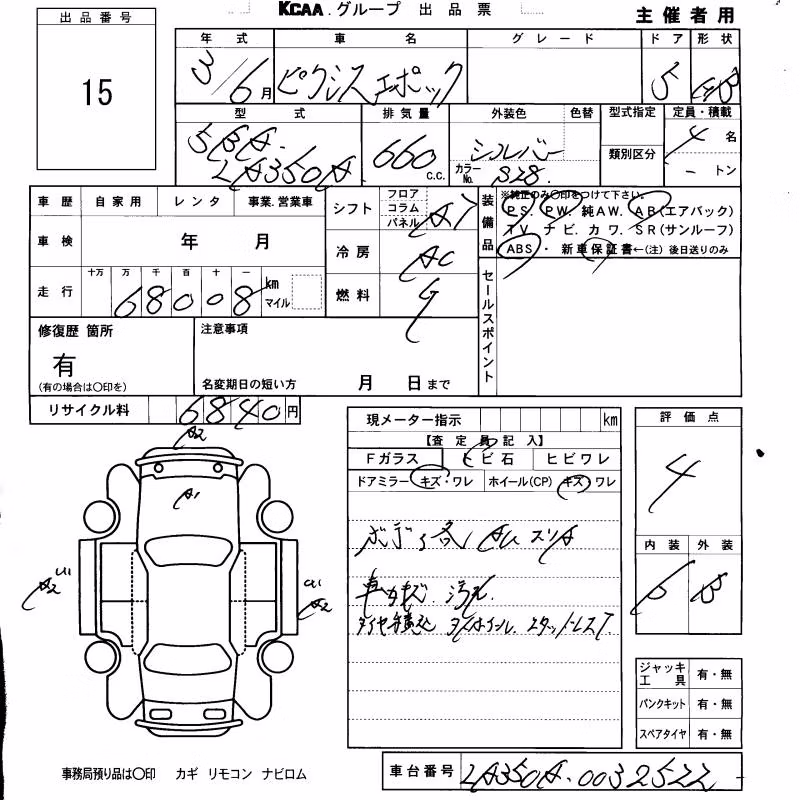 KCAA.グループ 出品票
主催者用
出品番号
15
年式 車名 グレード ドア 形状
3/6月 ピクシスエポック 5 HB
型式 排気量 外装色 色替 型式指定 定員・積載
5BA. 660 c.c. シルバー 4名
LA350A カラーNo. S28 類別区分 - トン
車歴 自家用 レンタ 事業.営業車
シフト フロア コラム パネル AT
装備品 ※純正のみ○印をつけて下さい。
PS. PW. 純AW. AB(エアバック)
TV ナビ. カワ. SR(サンルーフ)
ABS・ 新車保証書←(注) 後日送りのみ
車検 年 月
冷房 AC
走行 十万 万 千 百 十 一 km マイル
68008
燃料 G
セールスポイント
修復歴 箇所
有
(有の場合は○印を)
注意事項
名変期日の短い方 月 日まで
リサイクル料 6840円
現メーター指示 km
【査定員記入】
Fガラス ヒビ石 ヒビワレ
ドアミラー キズ・ワレ ホイール(CP) キズ ワレ
評価点
4
内装 外装
B B
A2
A1
A2
A2
ボディ各
汚れ
ジャッキ工具 有・無
パンクキット 有・無
スペアタイヤ 有・無
車台番号 LA350A-0032522
事務局預り品は○印 カギ リモコン ナビロム